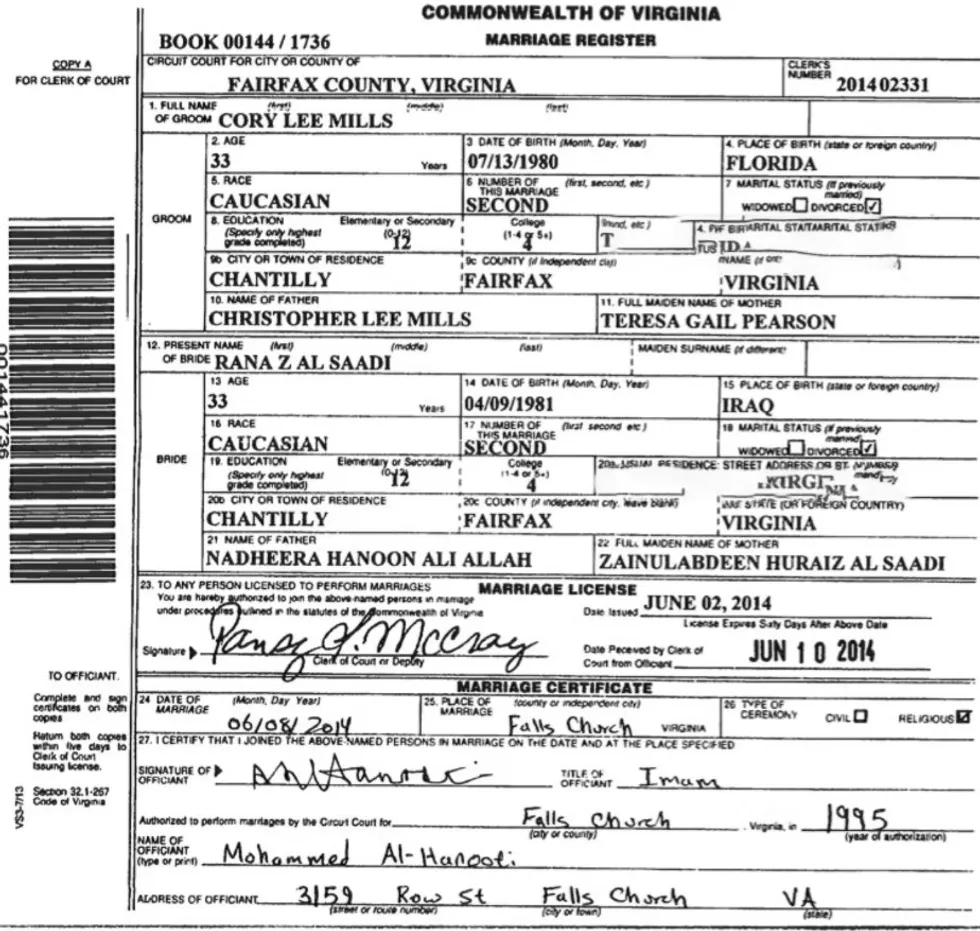 COMMONWEALTH OF VIRGINIA
BOOK 00144 / 1736 MARRIAGE REGISTER
COPY A
FOR CLERK OF COURT
CIRCUIT COURT FOR CITY OR COUNTY OF
FAIRFAX COUNTY, VIRGINIA
CLERK'S NUMBER 201402331
1. FULL NAME OF GROOM (first) (middle) (last)
CORY LEE MILLS
GROOM
2. AGE 3 DATE OF BIRTH (Month, Day, Year) 4. PLACE OF BIRTH (state or foreign country)
33 Years 07/13/1980 FLORIDA
5. RACE 6 NUMBER OF THIS MARRIAGE (first, second, etc.) 7 MARITAL STATUS (If previously married)
CAUCASIAN SECOND WIDOWED DIVORCED
8. EDUCATION (Specify only highest grade completed) Elementary or Secondary (0-12) College (1-4 or 5+)
12 4
9b CITY OR TOWN OF RESIDENCE 9c COUNTY (if independent city)
CHANTILLY FAIRFAX VIRGINIA
10. NAME OF FATHER 11. FULL MAIDEN NAME OF MOTHER
CHRISTOPHER LEE MILLS TERESA GAIL PEARSON
12. PRESENT NAME OF BRIDE (first) (middle) (last) MAIDEN SURNAME (if different)
RANA Z AL SAADI
BRIDE
13 AGE 14 DATE OF BIRTH (Month, Day, Year) 15 PLACE OF BIRTH (state or foreign country)
33 Years 04/09/1981 IRAQ
16 RACE 17 NUMBER OF THIS MARRIAGE (first second etc.) 18 MARITAL STATUS (If previously married)
CAUCASIAN SECOND WIDOWED DIVORCED
19. EDUCATION (Specify only highest grade completed) Elementary or Secondary (0-12) College (1-4 or 5+) RESIDENCE: STREET ADDRESS OR
12 4
20b CITY OR TOWN OF RESIDENCE 20c COUNTY (if independent city, leave blank) STATE (OR FOREIGN COUNTRY)
CHANTILLY FAIRFAX VIRGINIA
21 NAME OF FATHER 22 FULL MAIDEN NAME OF MOTHER
NADHEERA HANOON ALI ALLAH ZAINULABDEEN HURAIZ AL SAADI
001441736
23. TO ANY PERSON LICENSED TO PERFORM MARRIAGES MARRIAGE LICENSE
You are hereby authorized to join the above-named persons in marriage
under procedures outlined in the statutes of the Commonwealth of Virginia
Date Issued JUNE 02, 2014
License Expires Sixty Days After Above Date
Signature
Clerk of Court or Deputy
Date Received by Clerk of Court from Officiant JUN 10 2014
MARRIAGE CERTIFICATE
TO OFFICIANT.
Complete and sign
certificates on both
copies
Return both copies
within five days to
Clerk of Court
issuing license.
Section 32.1-267
Code of Virginia
VS3-7/13
24 DATE OF MARRIAGE (Month, Day Year) 06/08/2014
25. PLACE OF MARRIAGE (county or independent city) Falls Church VIRGINIA
26 TYPE OF CEREMONY CIVIL RELIGIOUS
27. I CERTIFY THAT I JOINED THE ABOVE-NAMED PERSONS IN MARRIAGE ON THE DATE AND AT THE PLACE SPECIFIED
SIGNATURE OF OFFICIANT TITLE OF OFFICIANT Imam
Authorized to perform marriages by the Circuit Court for Falls Church Virginia, in 1995
(city or county) (year of authorization)
NAME OF OFFICIANT (type or print) Mohammed Al-Hanooti
ADDRESS OF OFFICIANT 3159 Row St Falls Church VA
(street or route number) (city or town) (state)